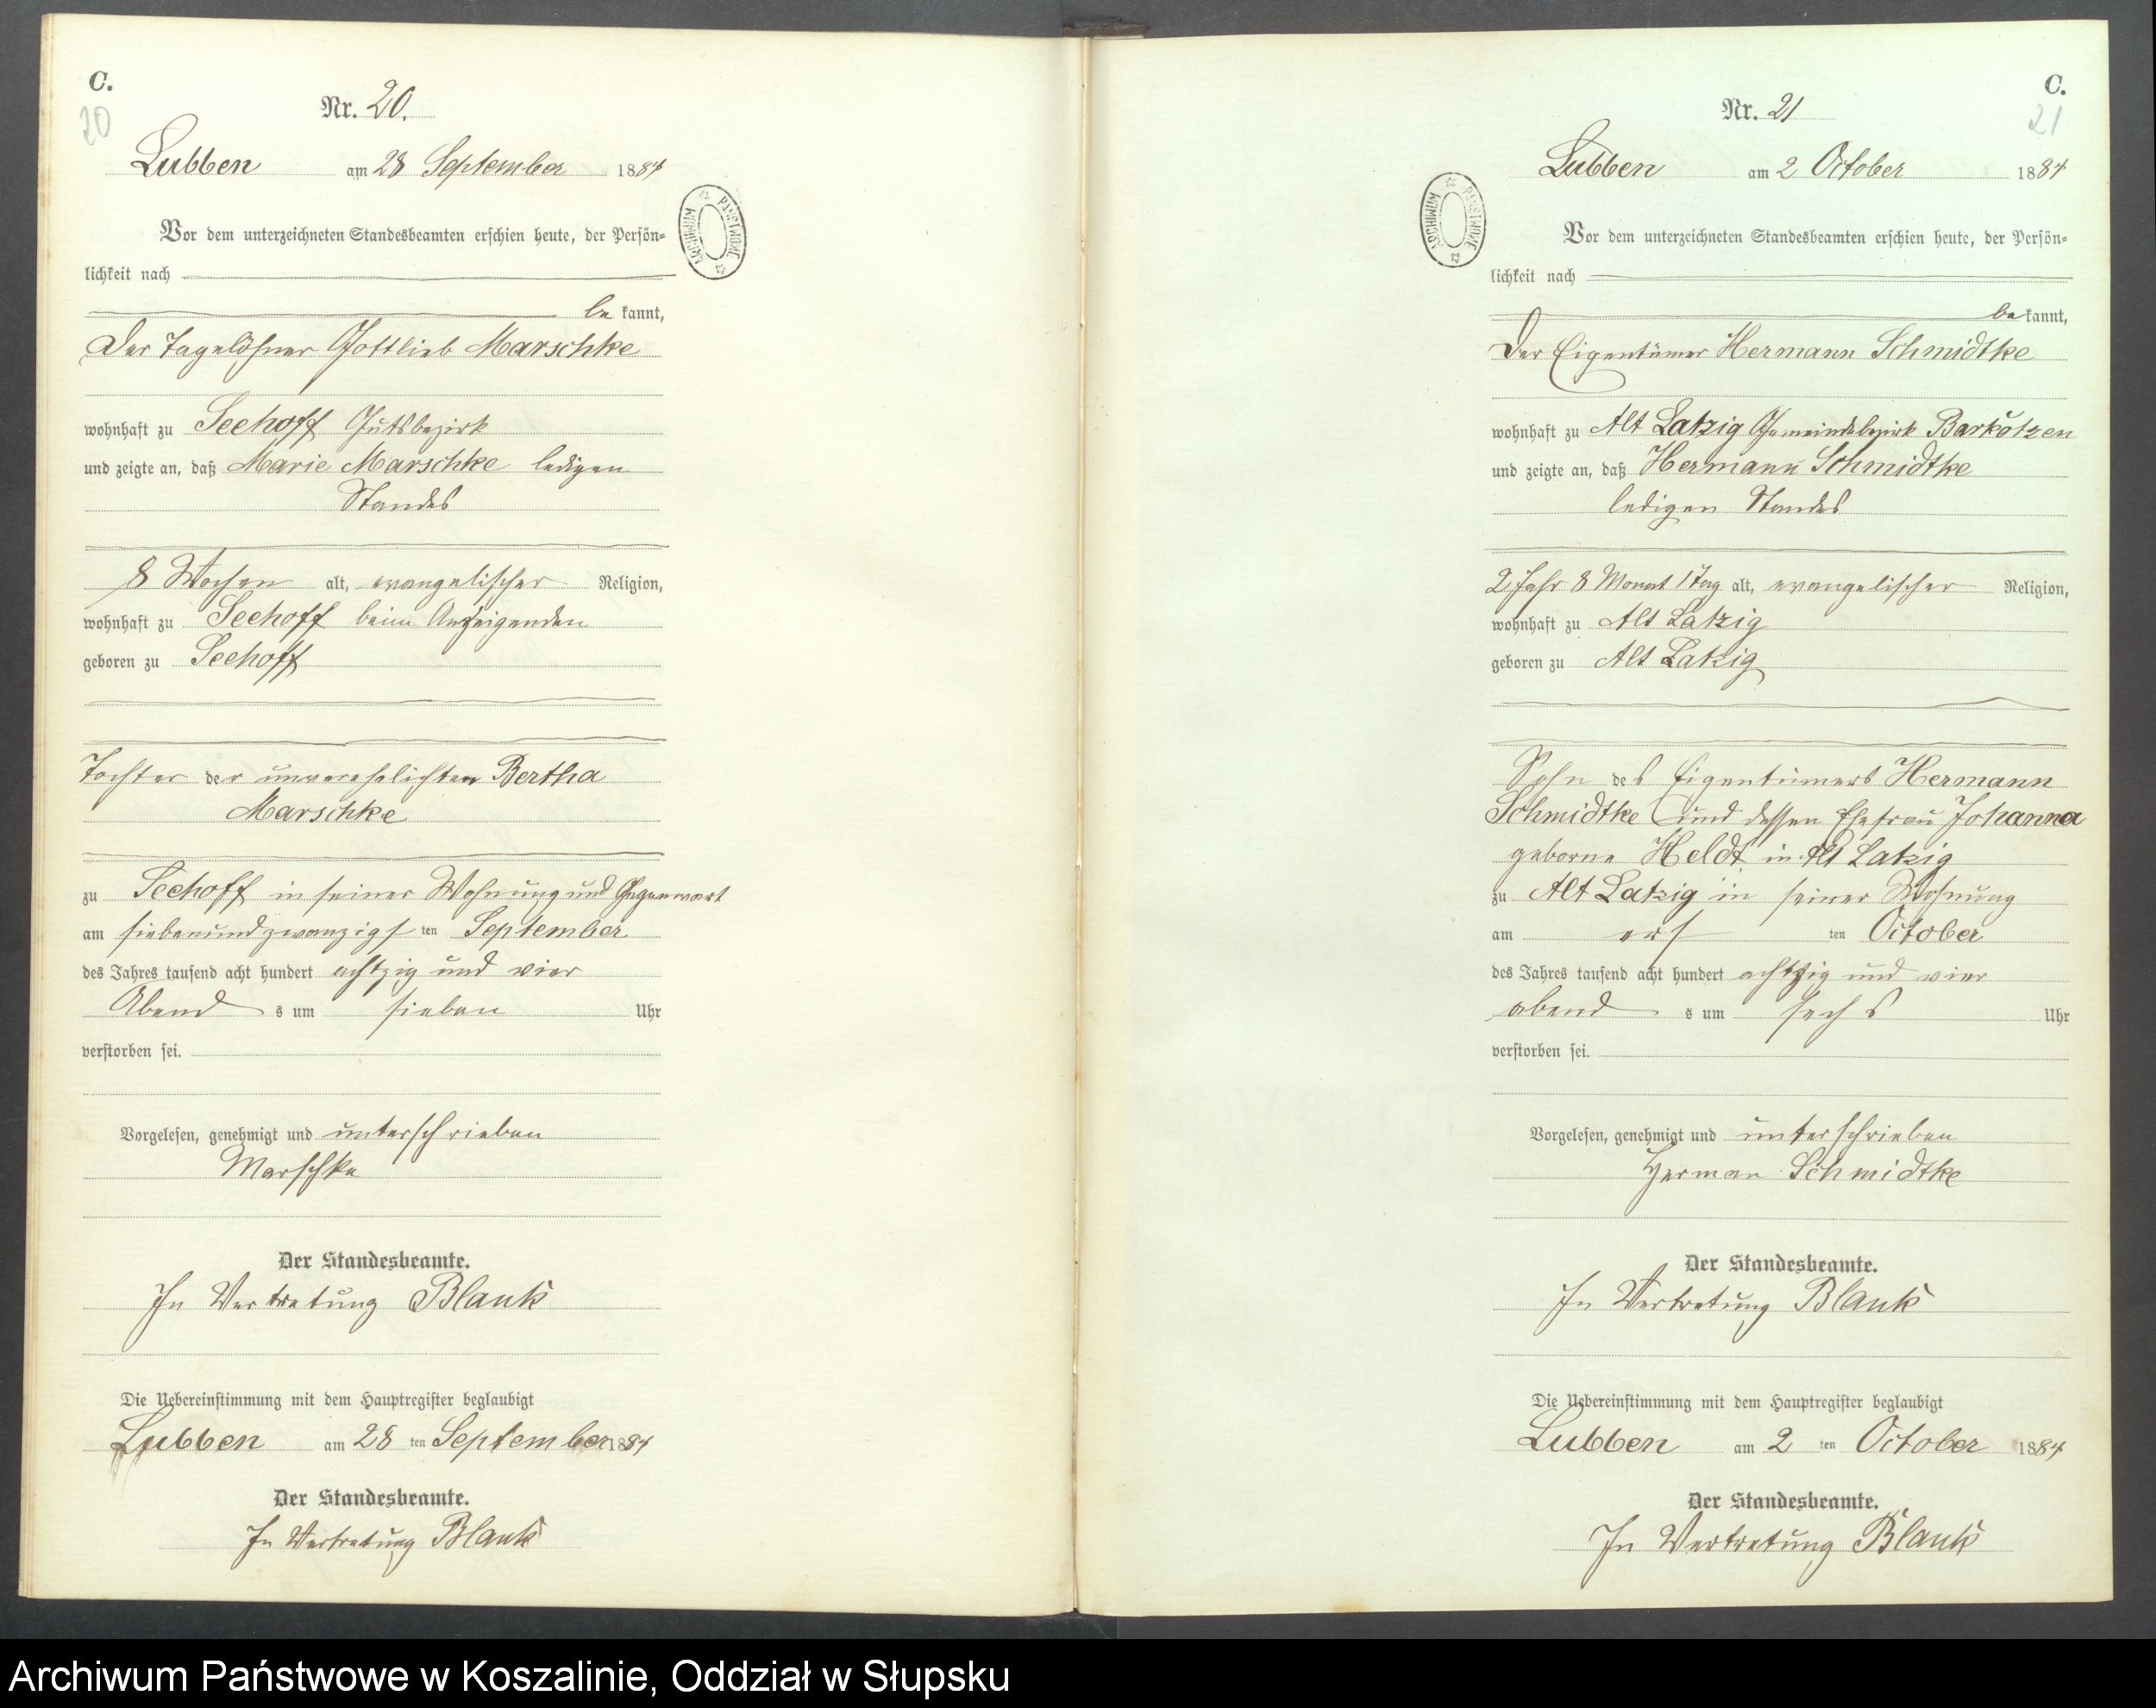 C.
20
Nr. 20.
Lubben am 28 September 1884
ARCHIWUM PAŃSTWOWE
Vor dem unterzeichneten Standesbeamten erschien heute, der Persön-
lichkeit nach
be kannt,
Der Tagelöhner Gottlieb Marschke
wohnhaft zu Seehoff Gutsbezirk
und zeigte an, daß Marie Marschke ledigen
Standes
8 Wochen alt, evangelischer Religion,
wohnhaft zu Seehoff beim Anzeigenden
geboren zu Seehoff
Tochter der unverehelichten Bertha
Marschke
zu Seehoff in seiner Wohnung und Gegenwart
am siebenundzwanzigsten September
des Jahres tausend acht hundert achtzig und vier
Abend s um sieben Uhr
verstorben sei.
Vorgelesen, genehmigt und unterschrieben
Marschke
Der Standesbeamte.
In Vertretung Blank
Die Uebereinstimmung mit dem Hauptregister beglaubigt
Lubben am 28 ten September 1884
Der Standesbeamte.
In Vertretung Blank
C.
21
Nr. 21
Lubben am 2 October 1884
ARCHIWUM PAŃSTWOWE
Vor dem unterzeichneten Standesbeamten erschien heute, der Persön-
lichkeit nach
be kannt,
Der Eigentümer Hermann Schmidtke
wohnhaft zu Alt Latzig Gemeindebezirk Barkotzen
und zeigte an, daß Hermann Schmidtke
ledigen Standes
2 Jahr 8 Monat 1 Tag alt, evangelischer Religion,
wohnhaft zu Alt Latzig
geboren zu Alt Latzig
Sohn des Eigentümers Hermann
Schmidtke und dessen Ehefrau Johanna
geborne Heldt in Alt Latzig
zu Alt Latzig in seiner Wohnung
am ersten October
des Jahres tausend acht hundert achtzig und vier
abend s um sechs Uhr
verstorben sei.
Vorgelesen, genehmigt und unterschrieben
Herman Schmidtke
Der Standesbeamte.
In Vertretung Blank
Die Uebereinstimmung mit dem Hauptregister beglaubigt
Lubben am 2 ten October 1884
Der Standesbeamte.
In Vertretung Blank
Archiwum Państwowe w Koszalinie, Oddział w Słupsku